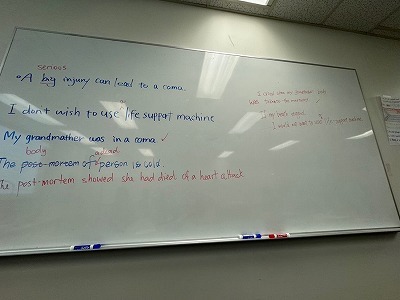 serious
A big injury can lead to a coma.
a
I don't wish to use life support machine
My grandmather was in a coma ✓
body a dead
The post-mortem of person is cold.
The post-mortem showed she had died of a heart attack
I cried when my grandmother
was
I my
I would not want to use life-support machine